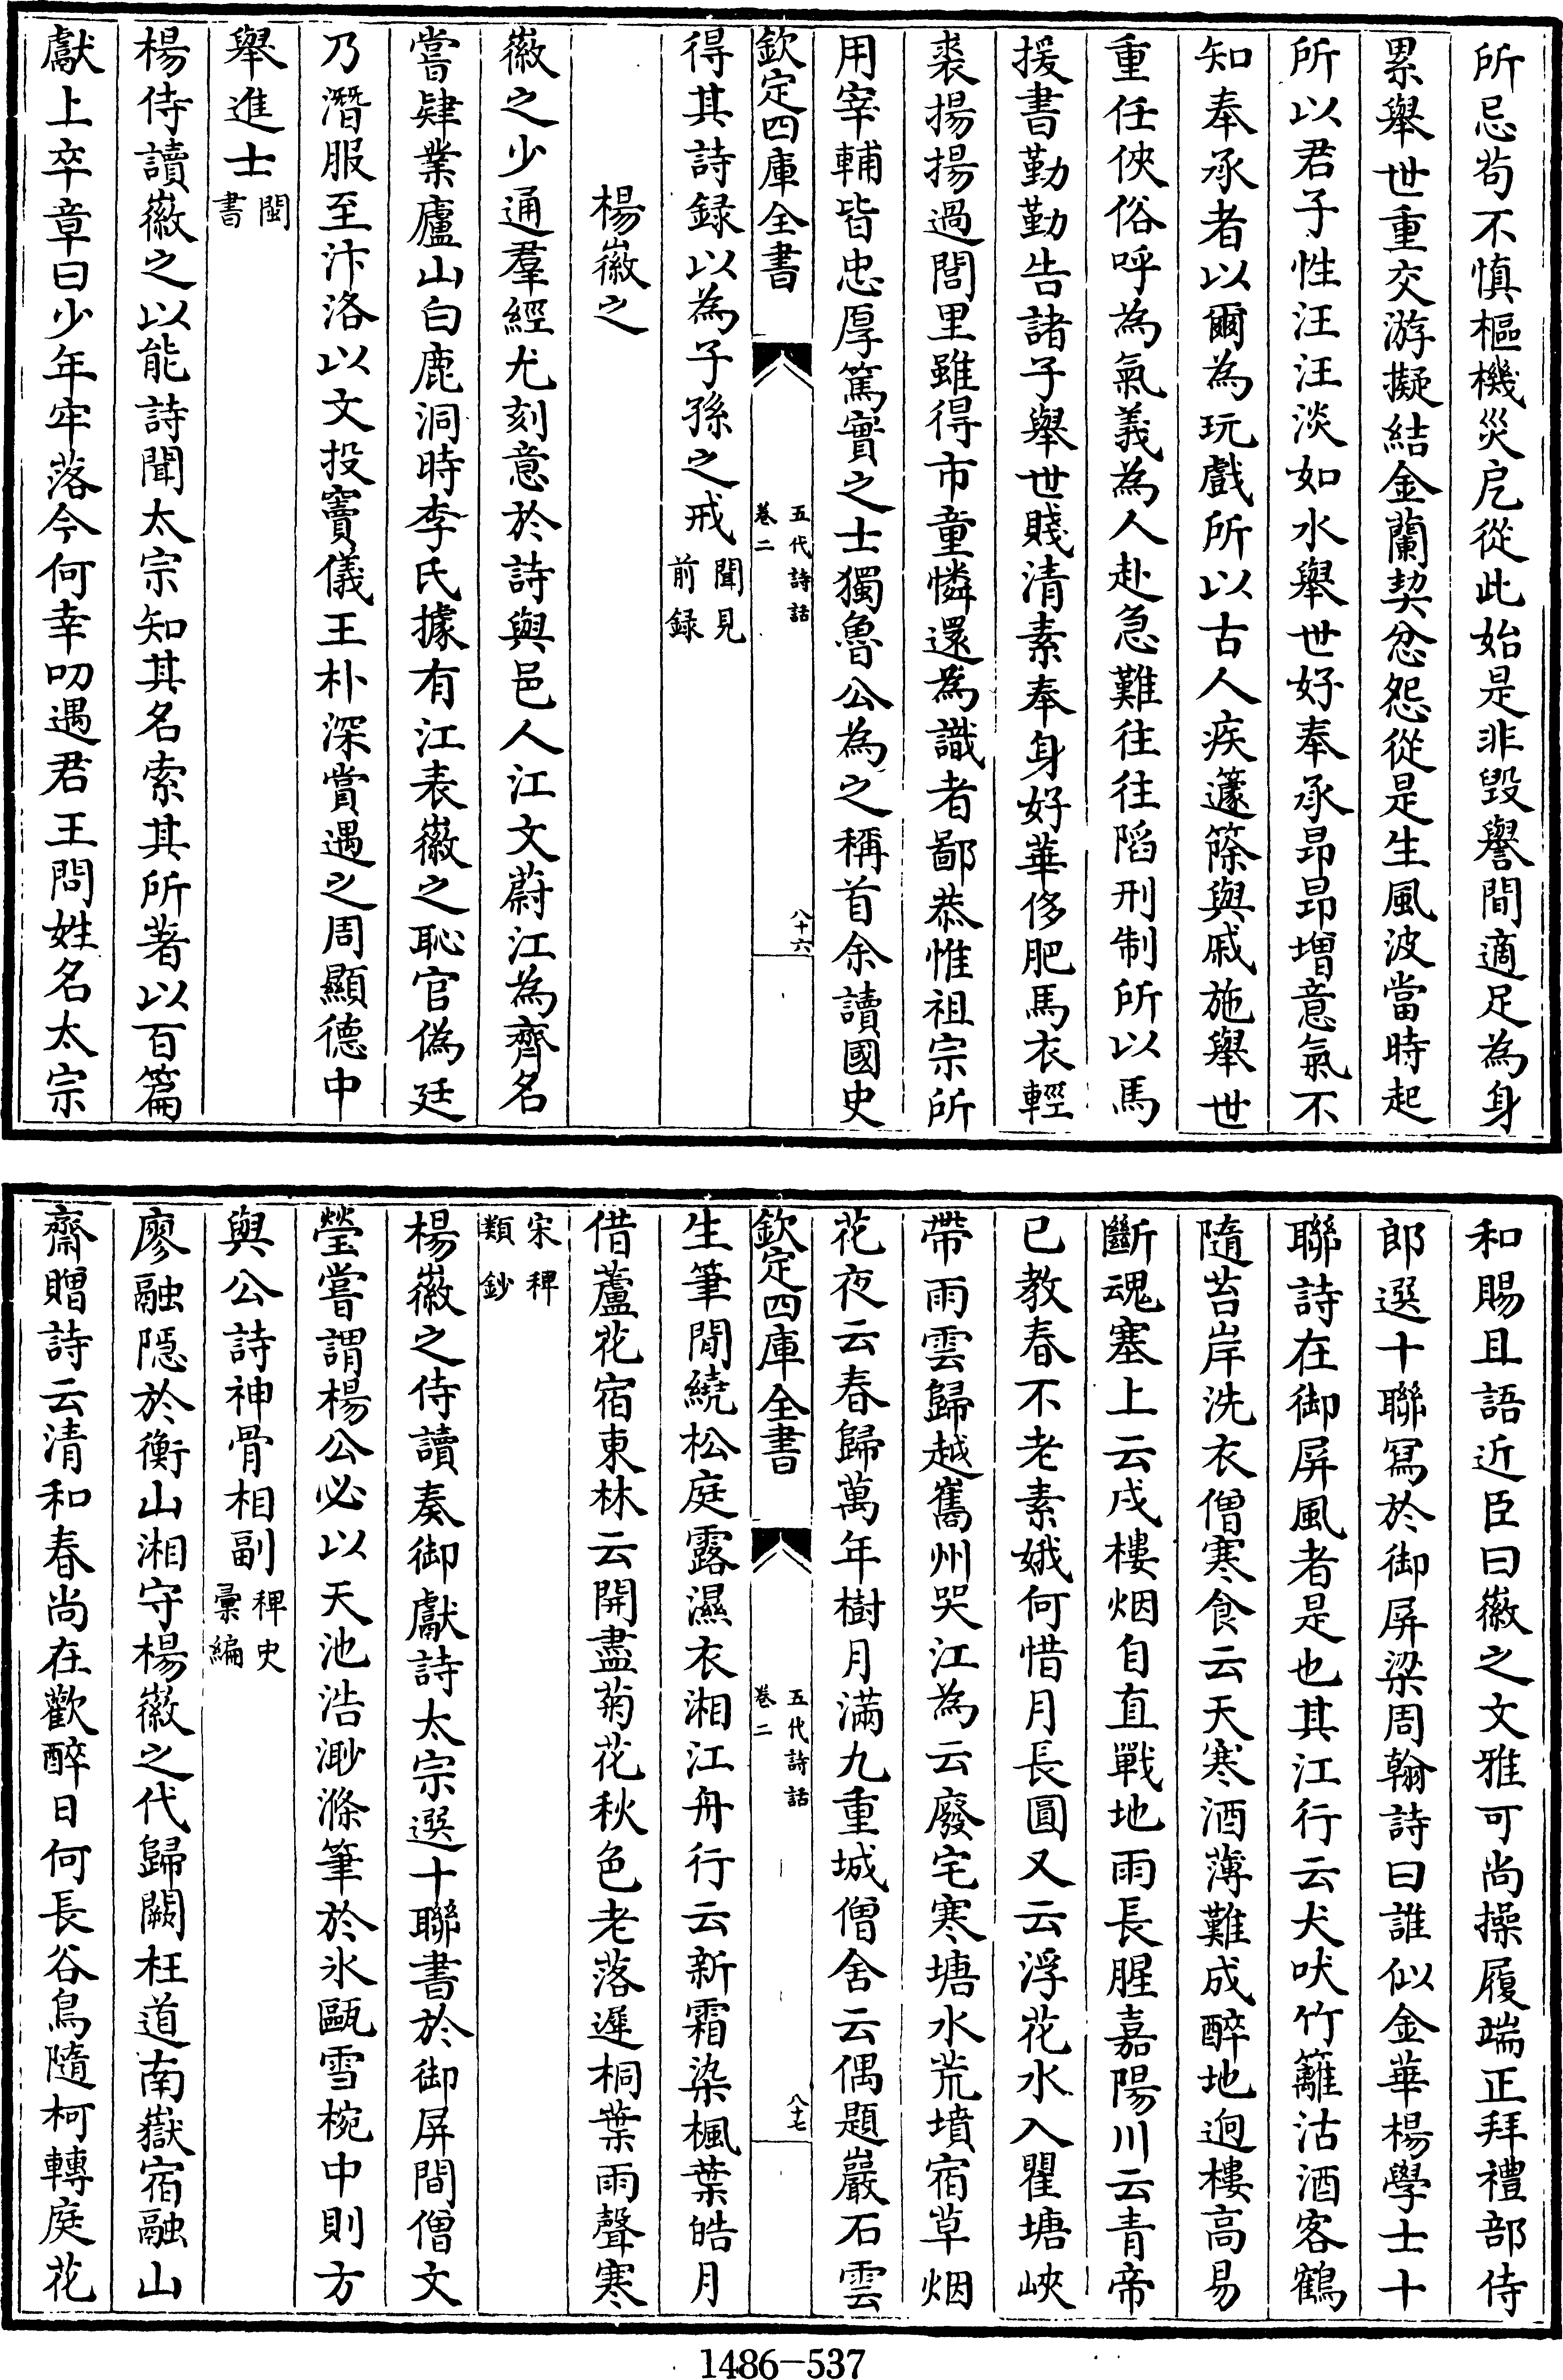 所忌苟不慎樞機災戹從此始是非毀譽間適足為身
累舉世重交游擬結金蘭契忿怨從是生風波當時起
所以君子性汪汪淡如水舉世好奉承昂昂增意氣不
知奉承者以爾為玩戲所以古人疾籧篨與戚施舉世
重任俠俗呼為氣義為人赴急難往往陷刑制所以馬
援書勤勤告諸子舉世賤清素奉身好華侈肥馬衣輕
裘揚揚過閭里雖得市童憐還為識者鄙恭惟祖宗所
用宰輔皆忠厚篤實之士獨魯公為之稱首余讀國史
欽定四庫全書
五代詩話
卷二
八十六
得其詩録以為子孫之戒聞見前録
楊徽之
徽之少通羣經尤刻意於詩與邑人江文蔚江為齊名
嘗肄業廬山白鹿洞時李氏據有江表徽之恥官偽廷
乃潛服至汴洛以文投竇儀王朴深賞遇之周顯德中
舉進士閩書
楊侍讀徽之以能詩聞太宗知其名索其所著以百篇
獻上卒章曰少年牢落今何幸叨遇君王問姓名太宗
和賜且語近臣曰徽之文雅可尚操履端正拜禮部侍
郎選十聯寫於御屏梁周翰詩曰誰似金華楊學士十
聯詩在御屏風者是也其江行云犬吠竹籬沽酒客鶴
隨苔岸洗衣僧寒食云天寒酒薄難成醉地迥樓高易
斷魂塞上云戍樓烟自直戰地雨長腥嘉陽川云青帝
已教春不老素娥何惜月長圓又云浮花水入瞿塘峽
帶雨雲歸越嶲州哭江為云廢宅寒塘水荒墳宿草烟
花夜云春歸萬年樹月滿九重城僧舍云偶題巖石雲
欽定四庫全書
五代詩話
卷二
八十七
生筆閒繞松庭露濕衣湘江舟行云新霜染楓葉皓月
借蘆花宿東林云開盡菊花秋色老落遲桐葉雨聲寒
宋稗類鈔
楊徽之侍讀奏御獻詩太宗選十聯書於御屏間僧文
瑩嘗謂楊公必以天池浩渺滌筆於氷甌雪椀中則方
與公詩神骨相副稗史彙編
廖融隱於衡山湘守楊徽之代歸闕枉道南嶽宿融山
齋贈詩云清和春尚在歡醉日何長谷鳥隨柯轉庭花
1486-537